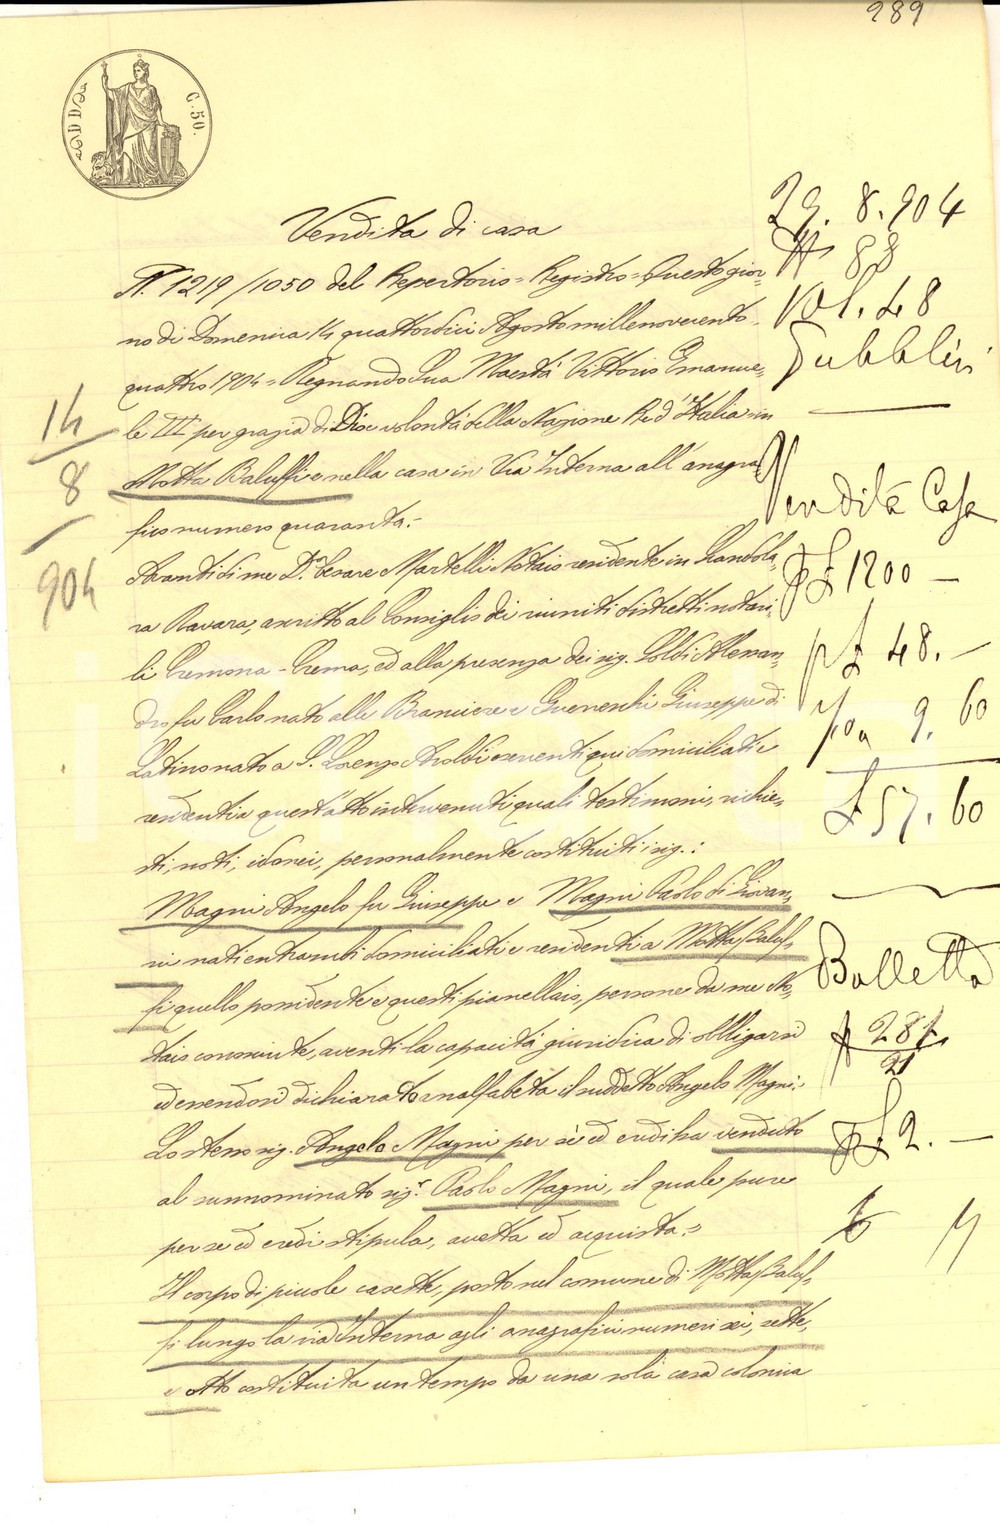 989
C. 50.
Vendita di casa
N. 1219/1050 del Repertorio = Registro = Questo gior-
no di Domenica 14 quattordici Agosto millenovecento-
quattro 1904 = Regnando Sua Maestà Vittorio Emanue-
le III per grazia di Dio e volontà della Nazione Re d'Italia in
Motta Baluffi e nella casa in Via Interna all'anagra-
fico numero quaranta.-
Avanti di me D.r Cesare Martelli Notaio residente in Scandola-
ra Ravara, ascritto al Consiglio dei riuniti distretti notari-
li Cremona - Crema, ed alla presenza dei sig.
dro fu Carlo nato alle Brancere e Guereschi Giuseppe di
Latino nato a S. Lorenzo Aroldi esercenti qui domiciliati e
residenti a quest'atto intervenuti quali testimoni, richie-
sti, noti, idonei, personalmente costituiti i sig.:
Magni Angelo fu Giuseppe e Magni Paolo di Giovan-
ni nati entrambi domiciliati e residenti a Motta Baluf-
fi quello possidente e questi pianellaio, persone da me No-
taio conosciute, aventi la capacità giuridica di obbligarsi
ed essendosi dichiarato analfabeta il suddetto Angelo Magni.
Lo stesso sig. Angelo Magni per sè ed eredi ha venduto
al sunnominato sig.r Paolo Magni, il quale pure
per se ed eredi stipula, accetta ed acquista:=
Il corpo di piccole casette, posto nel comune di Motta Baluf-
fi lungo la via Interna agli anagrafici numeri sei, sette,
e otto costituita un tempo da una sola casa colonica
14
8
904
29. 8. 904
N 88
Vol. 48
Pubblici
Vendita Casa
£ 1200 -
£ 48. -
9. 60
£ 57. 60
Bolletta
N 287
21
£ 2. -